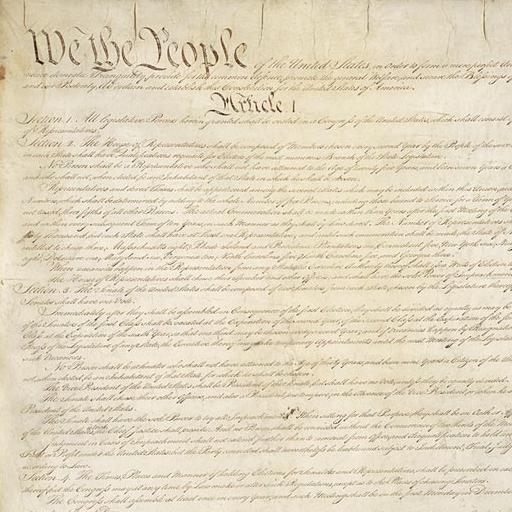 We the People of the United States, in Order to form a more perfect
insure domestic Tranquility, provide for the common defence, promote the general Welfare, and secure the Blessings of
and our Posterity, do ordain and establish this Constitution for the United States of America.
Article I
Section 1. All legislative Powers herein granted shall be vested in a Congress of the United States, which shall consist of
of Representatives.
Section 2. The House of Representatives shall be composed of Members chosen every second Year by the People of the several
in each State shall have Qualifications requisite for Electors of the most numerous Branch of the State Legislature.
No Person shall be a Representative who shall not have attained to the Age of twenty five Years, and been seven Years a
and who shall not, when elected, be an Inhabitant of that State in which he shall be chosen.
Representatives and direct Taxes shall be apportioned among the several States which may be included within this Union,
Numbers, which shall be determined by adding to the whole Number of free Persons, including those bound to Service for a Term of
not taxed, three fifths of all other Persons. The actual Enumeration shall be made within three Years after the first Meeting of the
and within every subsequent Term of ten Years, in such Manner as they shall by Law direct. The Number of Representatives
entitled to chuse three, Massachusetts eight, Rhode Island and Providence Plantations one, Connecticut five, New York six,
eight, Delaware one, Maryland six, Virginia ten, North Carolina five, South Carolina five, and Georgia three.
When vacancies happen in the Representation from any State, the Executive Authority thereof shall issue Writs of Election
The House of Representatives shall chuse their Speaker and other Officers; and shall have the sole Power of Impeachment.
Section 3. The Senate of the United States shall be composed of two Senators from each State, chosen by the Legislature
Senator shall have one Vote.
Immediately after they shall be assembled in Consequence of the first Election, they shall be divided as equally as may be
of the Senators of the first Class shall be vacated at the Expiration of the second Year, of the second Class at the Expiration of the
Class at the Expiration of the sixth Year, so that one third may be chosen every second Year; and if Vacancies happen by
Recess of the Legislature of any State, the Executive thereof may make temporary Appointments until the next Meeting of the Legislature
such Vacancies.
No Person shall be a Senator who shall not have attained to the Age of thirty Years, and been nine Years a Citizen of the
not, when elected, be an Inhabitant of that State for which he shall be chosen.
The Vice President of the United States shall be President of the Senate, but shall have no Vote, unless they be equally divided.
The Senate shall chuse their other Officers, and also a President pro tempore, in the Absence of the Vice President, or when he
President of the United States.
The Senate shall have the sole Power to try all Impeachments. When sitting for that Purpose, they shall be on Oath or
of the United States, the Chief Justice shall preside: And no Person shall be convicted without the Concurrence of two thirds of the
Judgment in Cases of Impeachment shall not extend further than to removal from Office, and disqualification to hold
Trust or Profit under the United States: but the Party convicted shall nevertheless be liable and subject to Indictment, Trial,
according to Law.
Section 4. The Times, Places and Manner of holding Elections for Senators and Representatives, shall be prescribed in each
thereof; but the Congress may at any time by Law make or alter such Regulations, except as to the Places of chusing Senators.
The Congress shall assemble at least once in every Year, and such Meeting shall be on the first Monday in December